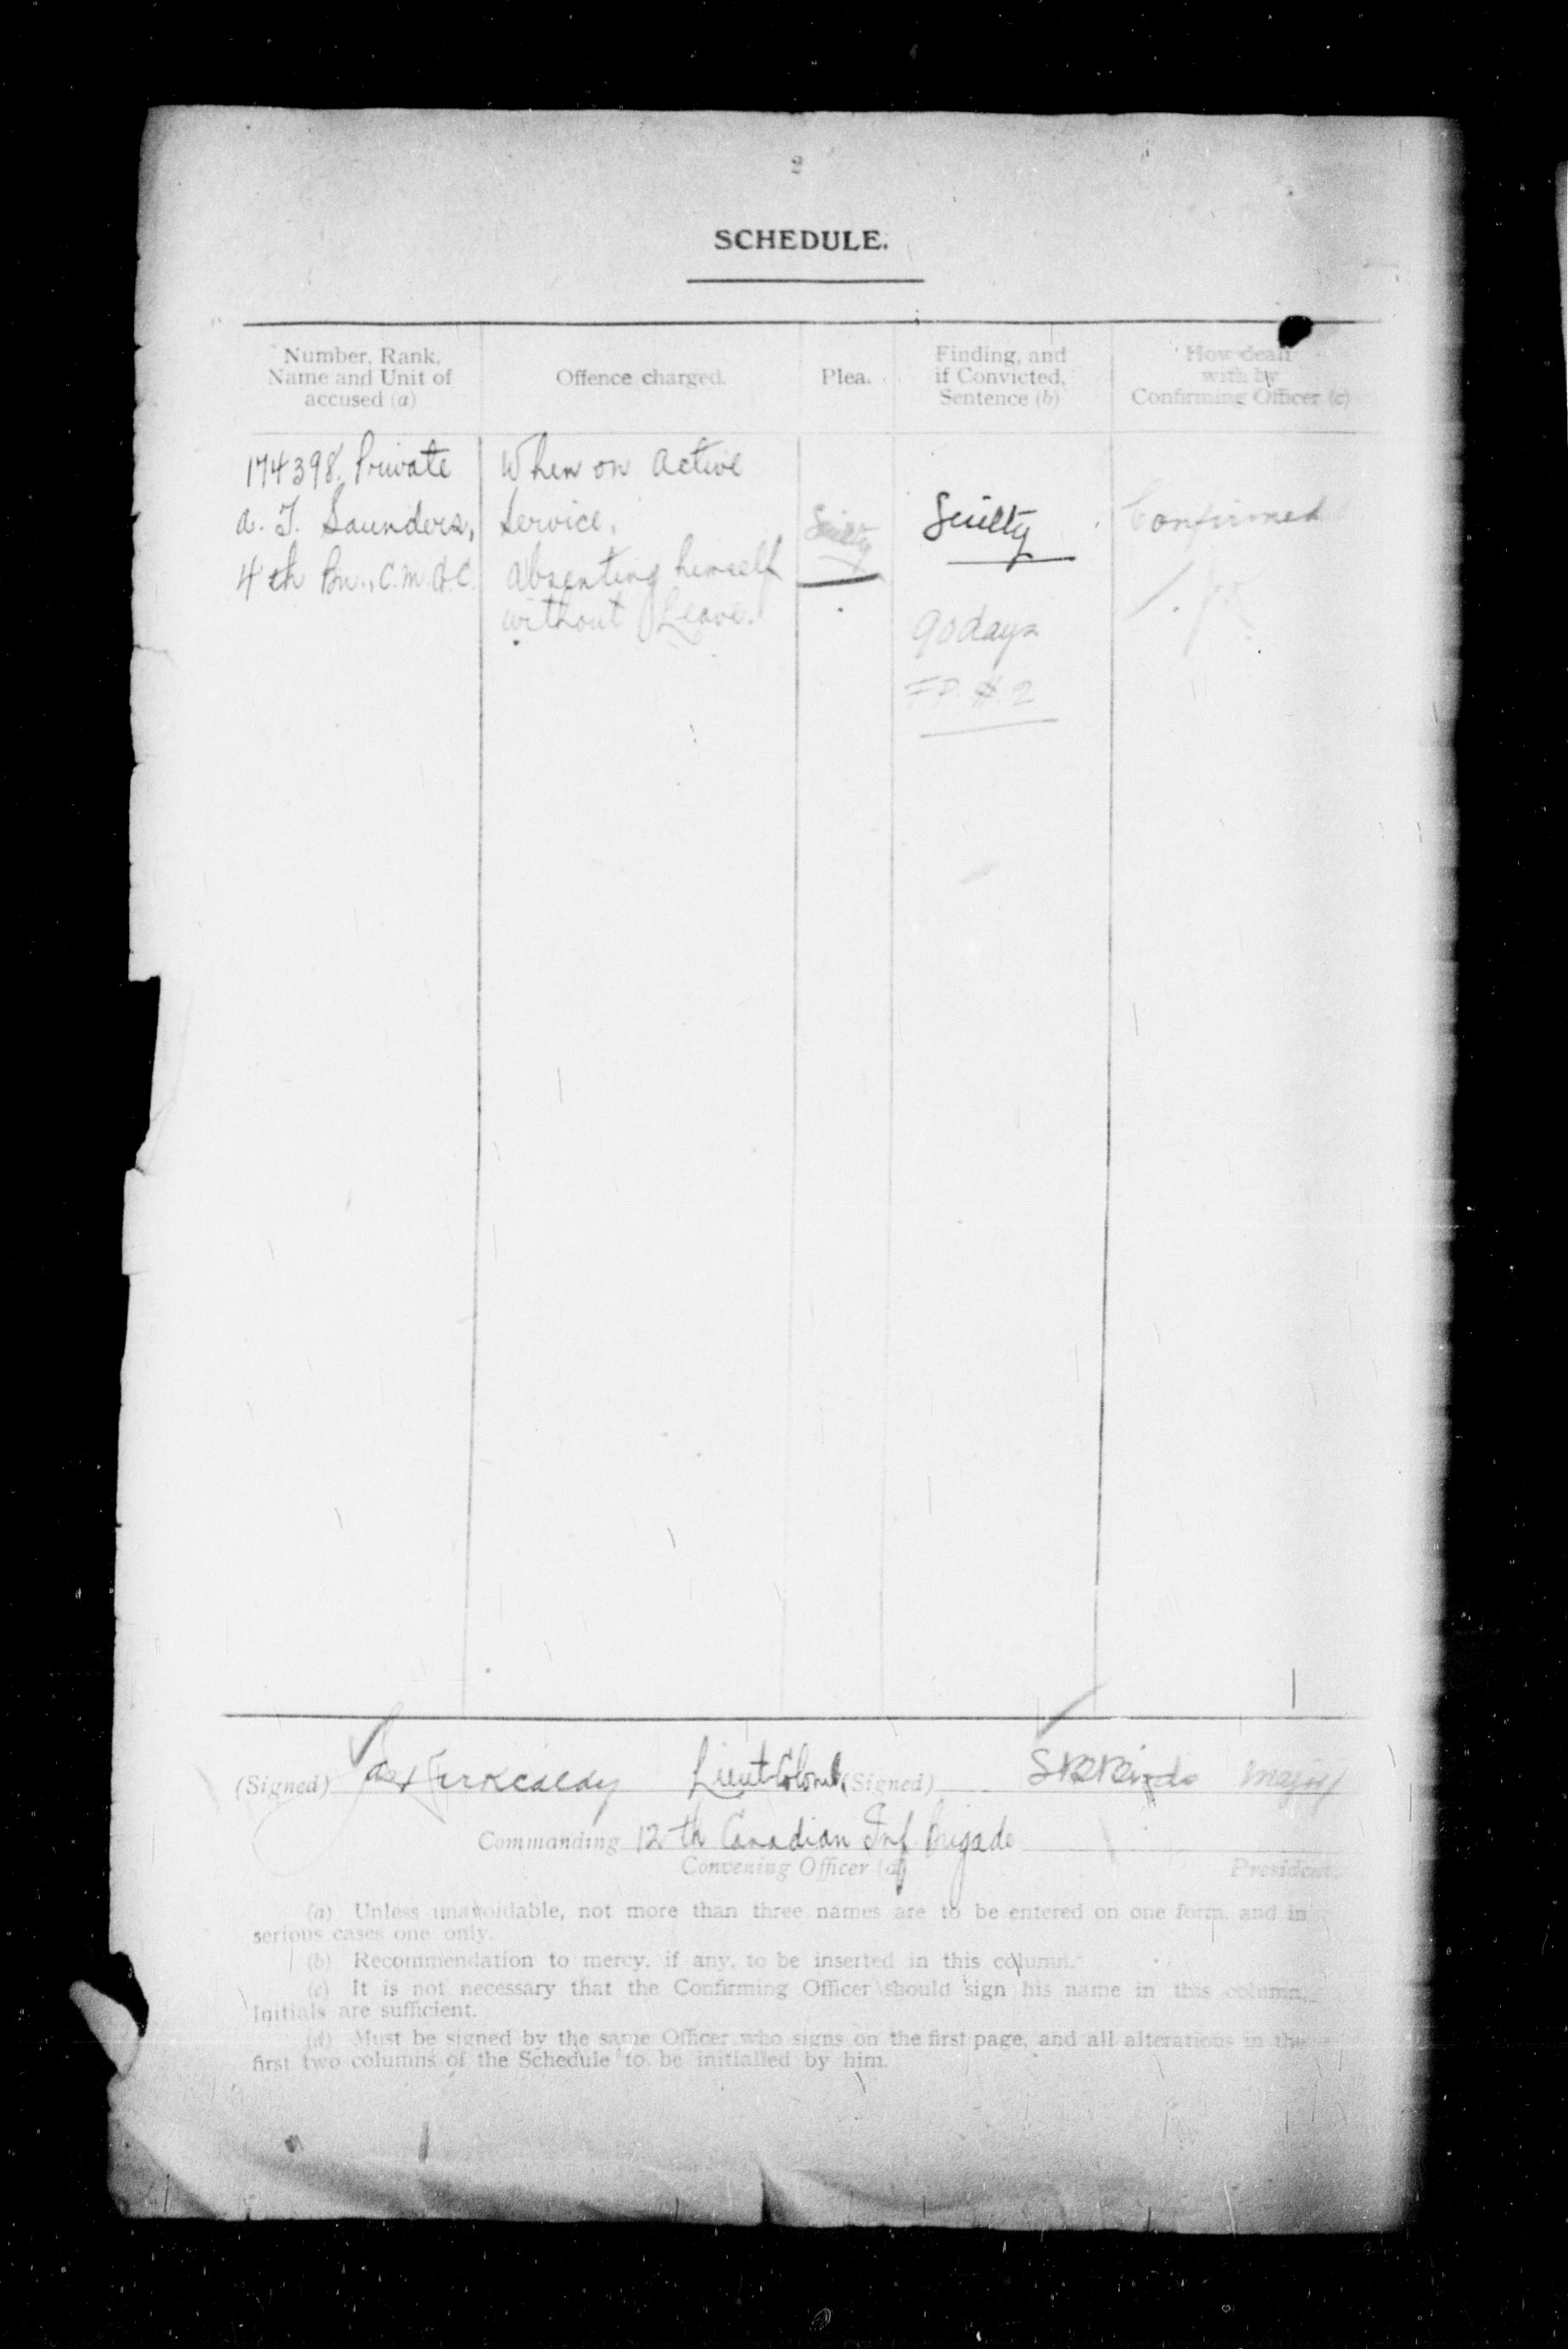 2
SCHEDULE.
Number, Rank,
Name and Unit of
accused (a)
Offence charged.
Plea.
Finding, and
if Convicted,
Sentence (b)
How dealt
with by
Confirming Officer (c)
174398. Private
A. T. Saunders,
4th Bn., C.M.G.C.
When on Active
Service,
absenting himself
without Leave.
Guilty
Guilty
90 days
F.P. # 2
Confirmed
(Signed) Lieut-Colonel (Signed) Major
Commanding 12th Canadian Inf Brigade
Convening Officer (d) President.
(a) Unless unavoidable, not more than three names are to be entered on one form, and in
serious cases one only.
(b) Recommendation to mercy, if any, to be inserted in this column.
(c) It is not necessary that the Confirming Officer should sign his name in this column.
Initials are sufficient.
(d) Must be signed by the same Officer who signs on the first page, and all alterations in the
first two columns of the Schedule to be initialled by him.